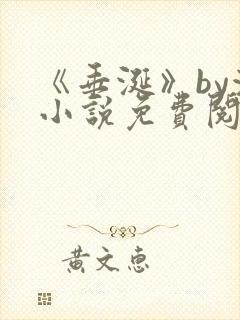 《垂涎》by
小說免費閱
黃文惠